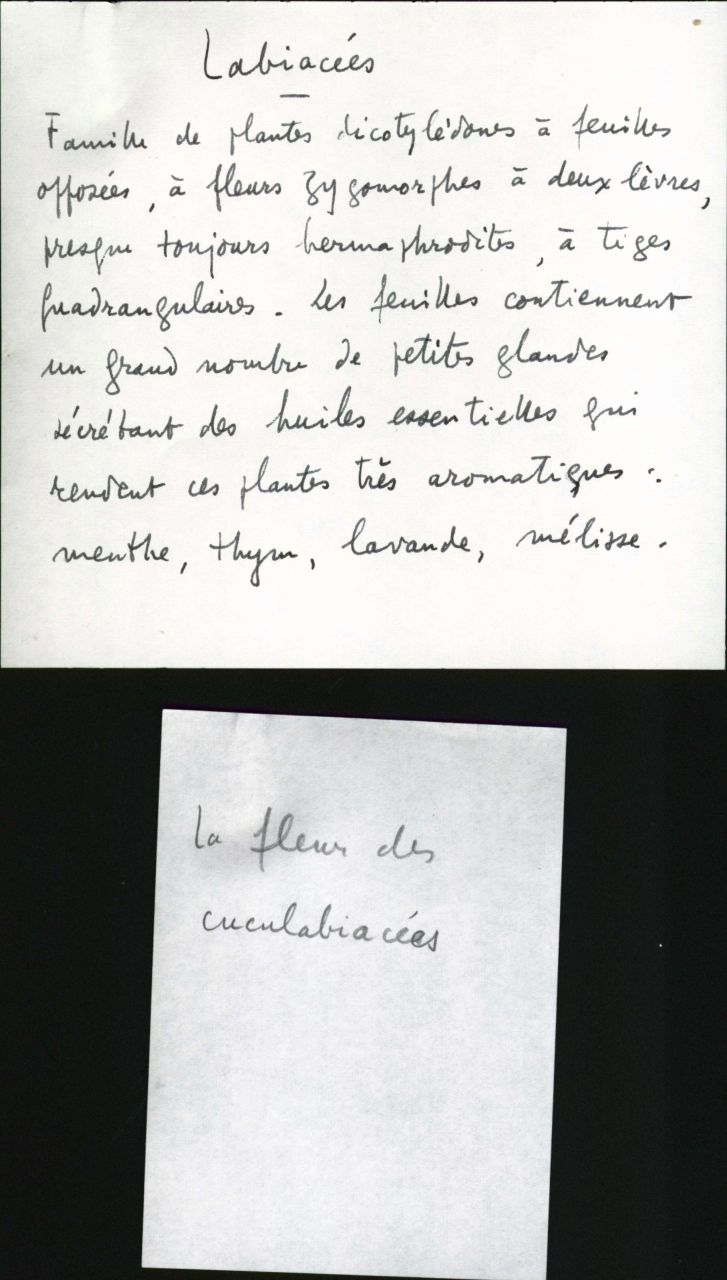 Labiacées
Famille de plantes dicotylédones à feuilles
opposées, à fleurs zygomorphes à deux lèvres,
presque toujours hermaphrodites, à tiges
quadrangulaires. Les feuilles contiennent
un grand nombre de petites glandes
sécrétant des huiles essentielles qui
rendent ces plantes très aromatiques :
menthe, thym, lavande, mélisse.
La fleur des
cuculabiacées